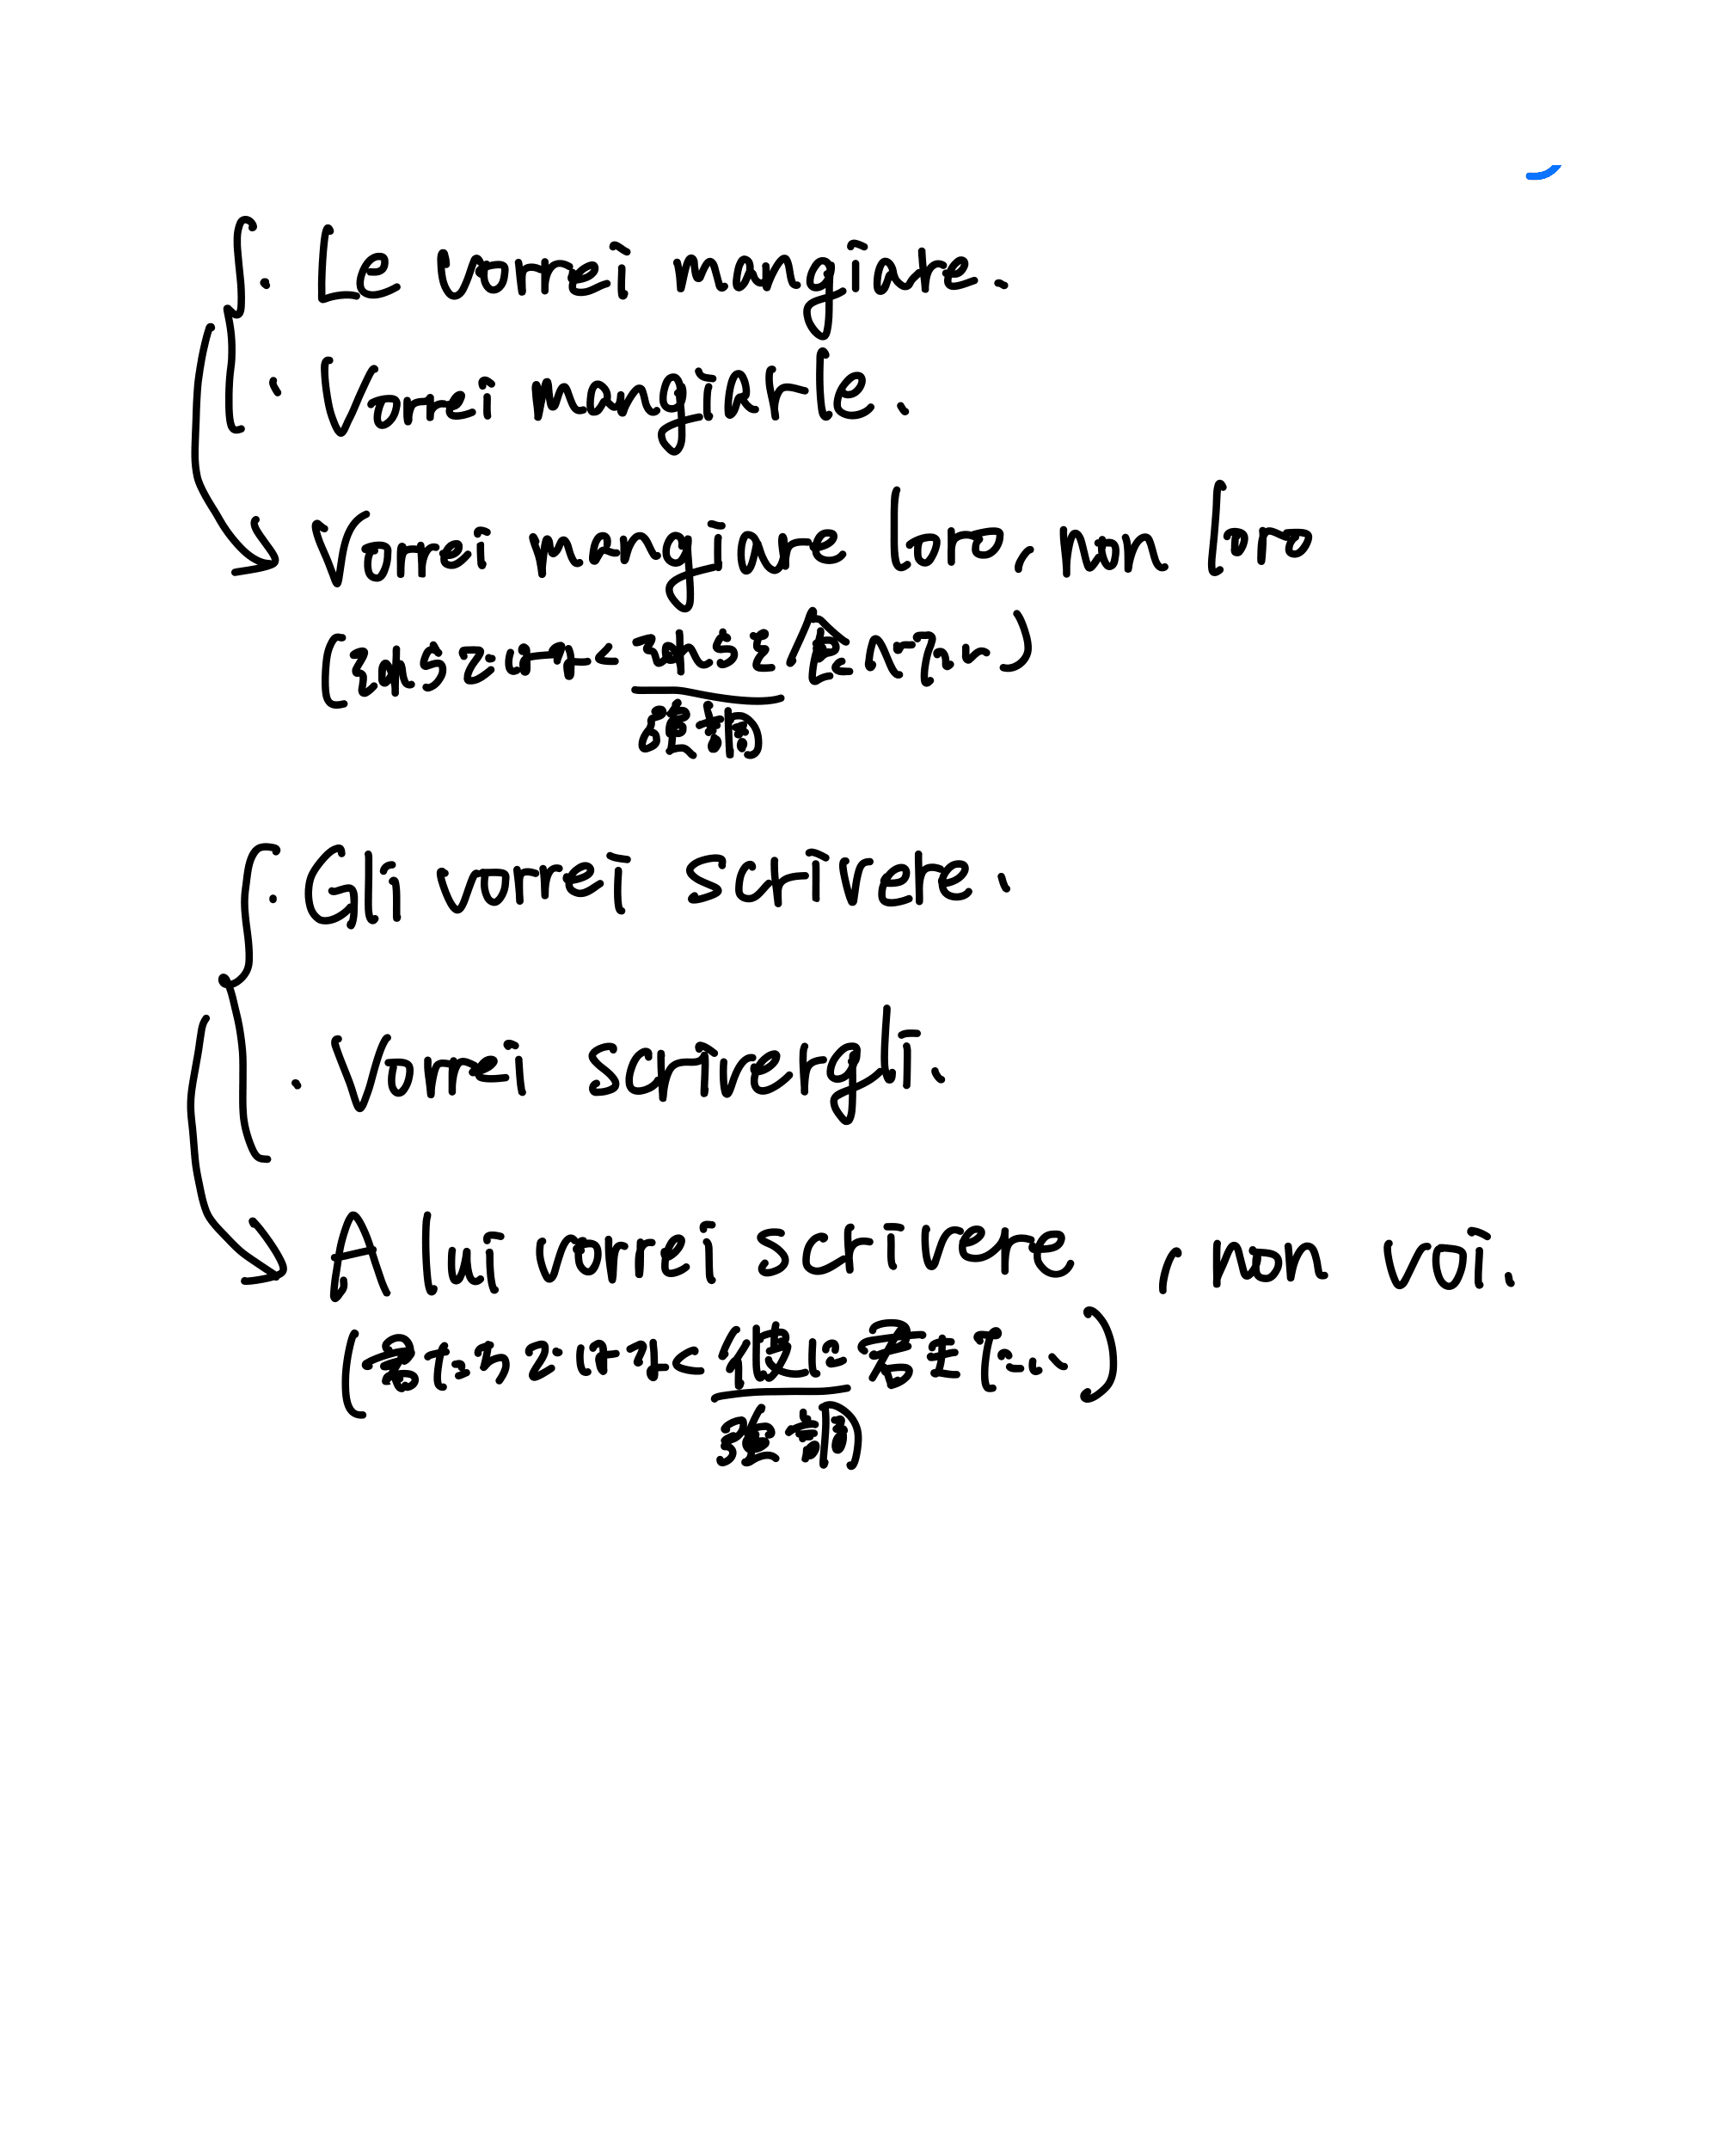 · Le vorrei mangiare.
· Vorrei mangiarle.
Vorrei mangiare loro, non loro
(それらではなくそれらを食べたい)
強調
· Gli vorrei scrivere.
· Vorrei scrivergli.
A lui vorrei scrivere, non voi.
(ではなく彼に)
強調